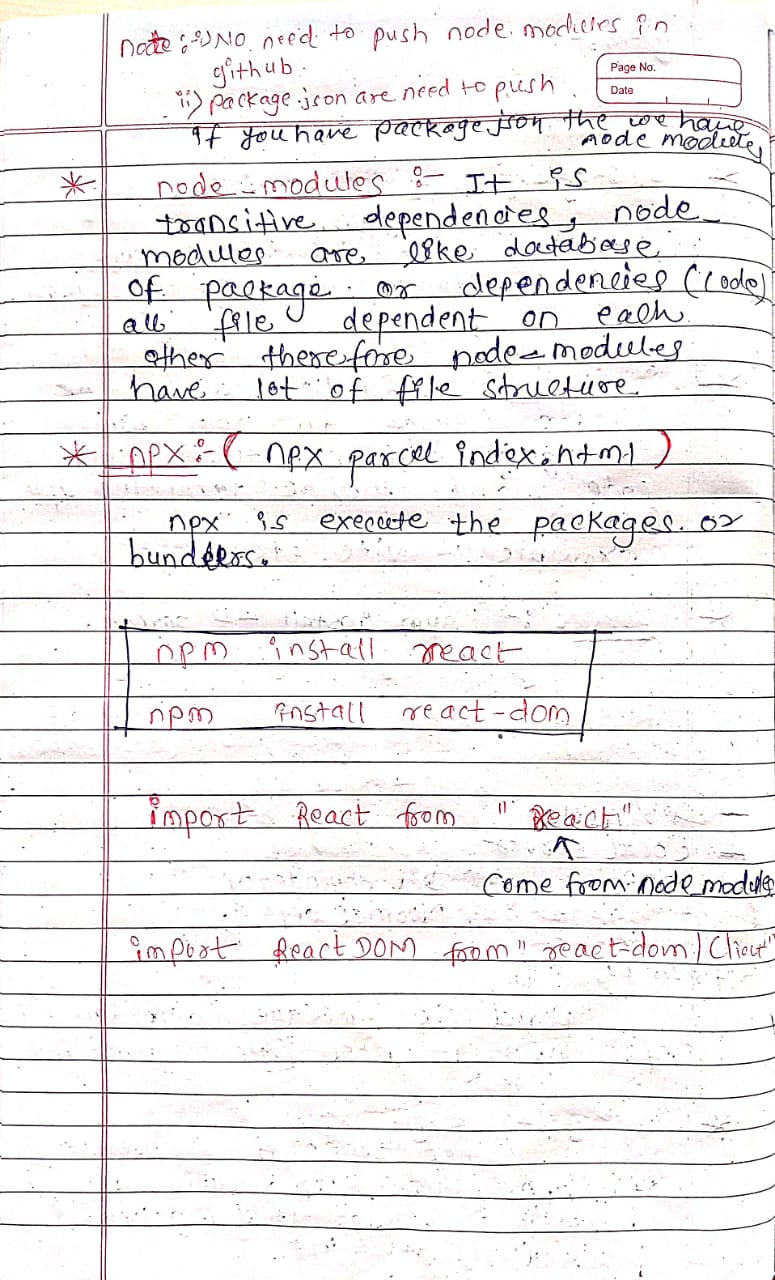 note :- i) NO need to push node modules in
github.
Page No.
ii) package.json are need to push.
Date
If you have package json the we have
node modules
* node-modules :- It is
transitive dependencies, node
modules are like database
of package or dependencies (code)
all file dependent on each
other therefore node-modules
have lot of file structure.
* npx :- ( npx parcel index.html )
npx is execute the packages. or
bundlers.
npm install react
npm install react-dom
import React from "React"
↑
Come from node modules
import ReactDOM from "react-dom/Client"